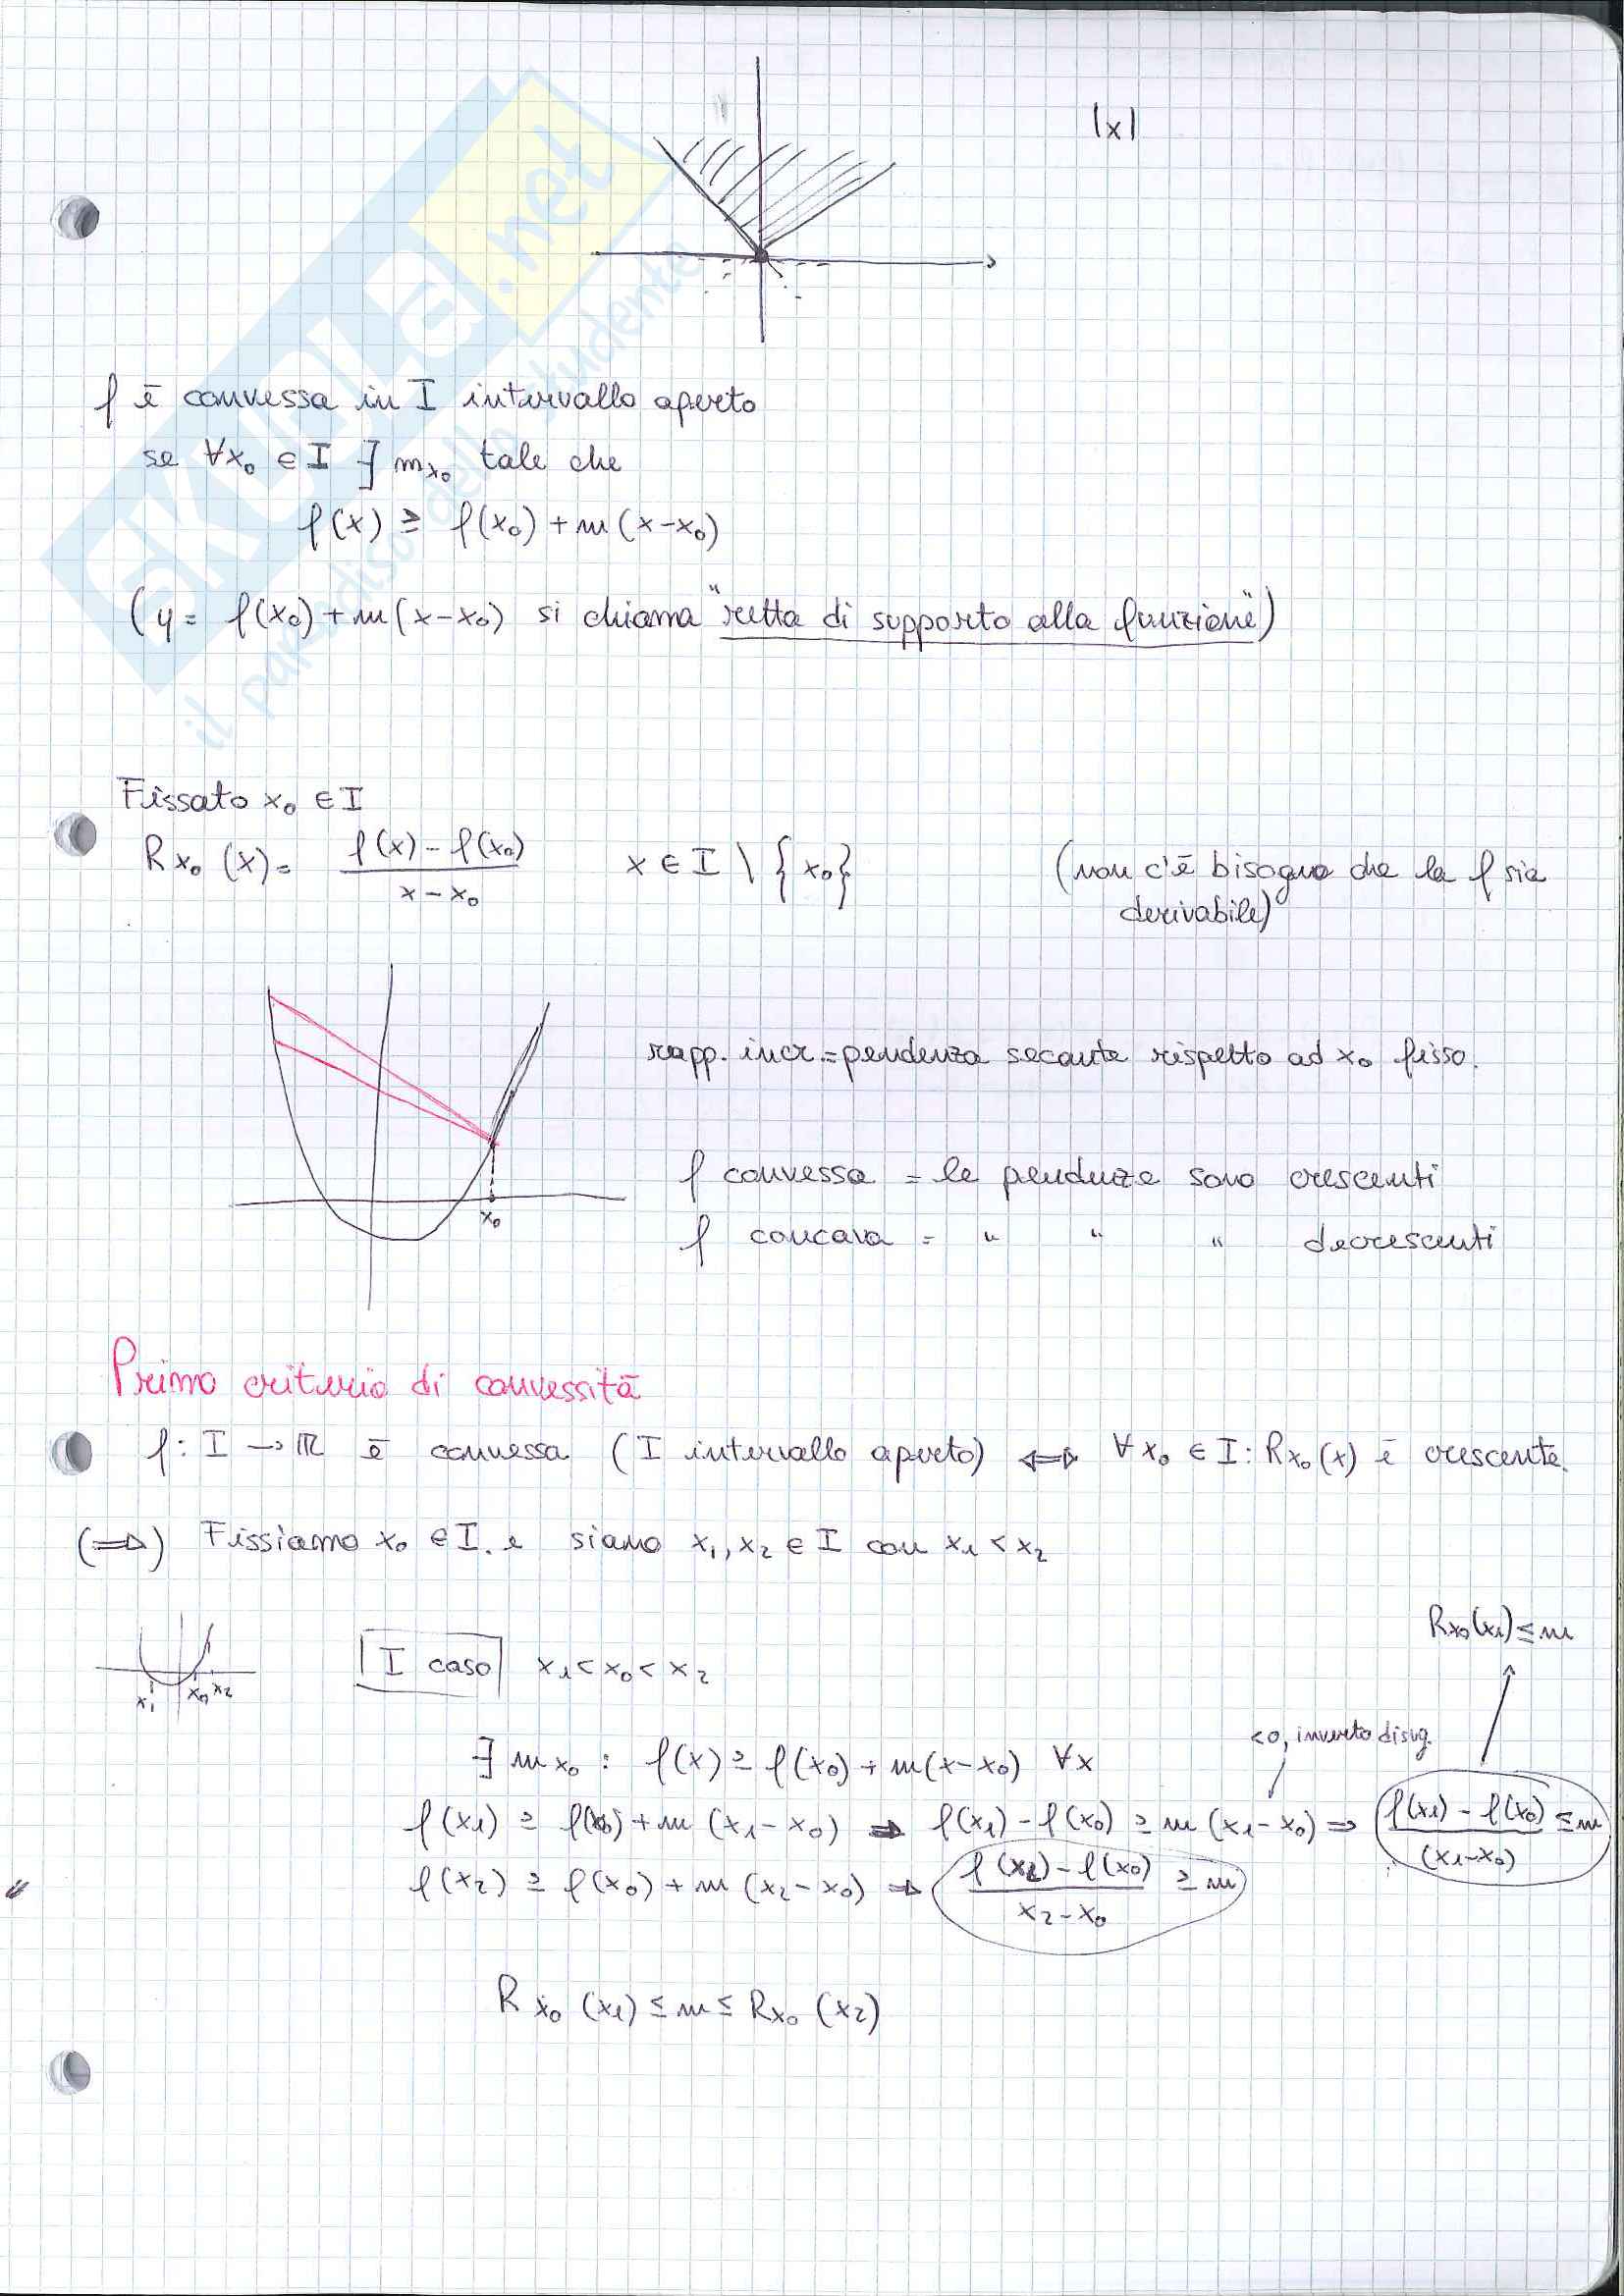 |x|
SKUOLA.net
il paradiso dello studente
f è convessa in I intervallo aperto
se ∀x₀ ∈ I ∃ mₓ₀ tale che
f(x) ≥ f(x₀) + m(x-x₀)
(y = f(x₀) + m(x-x₀) si chiama "retta di supporto alla funzione")
Fissato x₀ ∈ I
Rx₀(x) = f(x) - f(x₀) / x - x₀ x ∈ I \ {x₀} (non c'è bisogno che la f sia
derivabile)
rapp. incr. = pendenza secante rispetto ad x₀ fisso.
f convessa = le pendenze sono crescenti
x₀
f concava = " " " decrescenti
Primo criterio di convessità
f: I → ℝ è convessa (I intervallo aperto) ⇔ ∀x₀ ∈ I: Rx₀(x) è crescente.
(⇒) Fissiamo x₀ ∈ I. e siano x₁, x₂ ∈ I con x₁ < x₂
Rx₀(x₁) ≤ m
I caso x₁ < x₀ < x₂
x₁ x₀ x₂
<0, inverto disug.
∃ mx₀ : f(x) ≥ f(x₀) + m(x-x₀) ∀x
f(x₁) ≥ f(x₀) + m (x₁-x₀) ⇒ f(x₁) - f(x₀) ≥ m (x₁-x₀) ⇒ f(x₁) - f(x₀) / (x₁-x₀) ≤ m
f(x₂) ≥ f(x₀) + m (x₂-x₀) ⇒ f(x₂) - f(x₀) / x₂-x₀ ≥ m
Rx₀(x₁) ≤ m ≤ Rx₀(x₂)